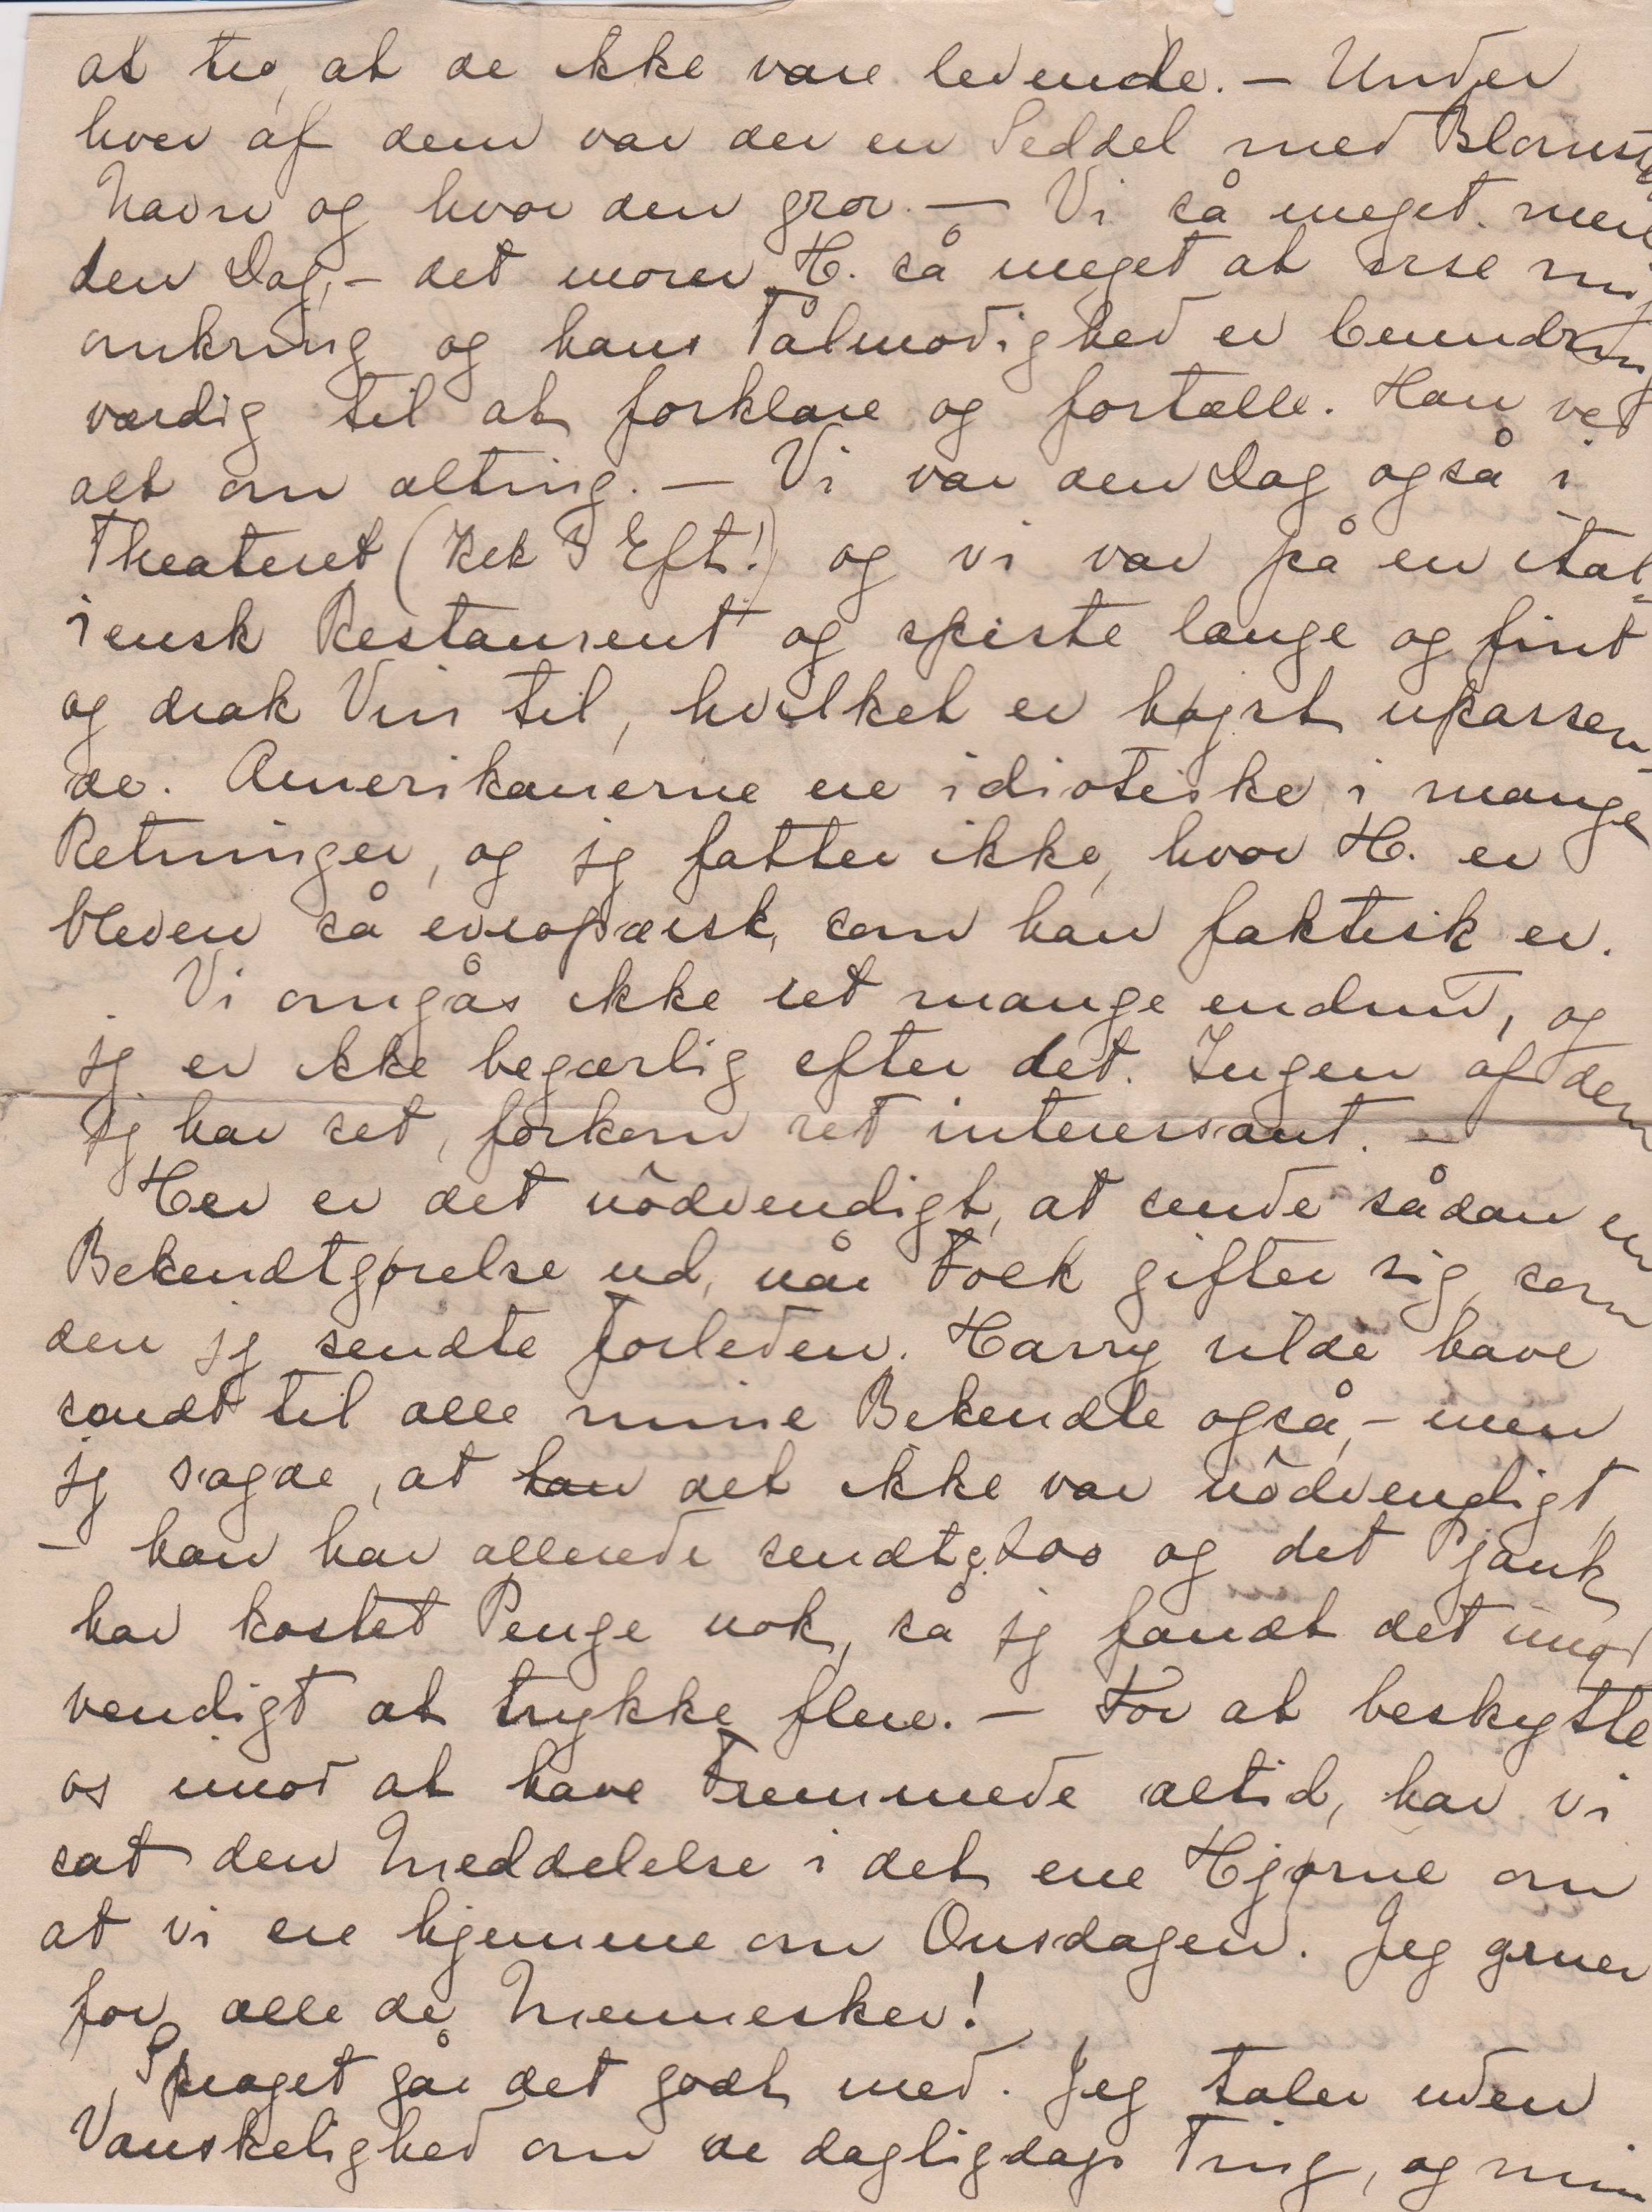 at tro, at de ikke vare levende. – Under
hver af dem var der en Seddel med Blomst
Navn og hvor den gror. – Vi så meget mere
den Dag, – det morer H. så meget at vise mig
omkring og hans Tålmodighed er beundrings
værdig til at forklare og fortælle. Han ved
alt om alting. – Vi var den Dag også i
Theatret (Kek 3 Eft!) og vi var på en ital=
iensk Restaurent og spiste længe og fint
og drak Vin til, hvilket er højst upassen-
de. Amerikanerne ere idiotiske i mange
Retninger, og jg fatter ikke, hvor H. er
bleven så evropæisk, som han faktisk er.
Vi omgås ikke ret mange endnu, og
jg er ikke begærlig efter det. Ingen af dem
jg har set, forkom ret interessant. –
Her er det nödvendigt, at sende sådan en
Bekendtgørelse ud, når Folk gifter sig, som
den jg sendte forleden. Harry vilde have
sendt til alle mine Bekendte også, – men
jg sagde, at han det ikke var nödvendigt,
– han har allerede sendt 200 og det Pjank
har kostet Penge nok, så jg fandt det unød
vendigt at trykke flere. – For at beskytte
os imod at have Fremmede altid, har vi
sat den Meddelelse i det ene Hjørne om
at vi ere hjemme om Onsdagen. Jeg gruer
for alle de Mennesker!
Sproget går det godt med. Jeg taler uden
Vanskelighed om de dagligdags Ting, og min